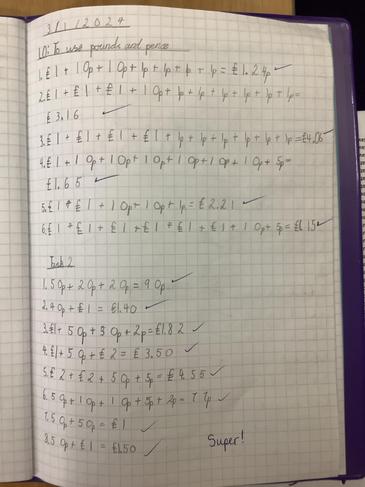 31 1 2024
LO: To use pounds and pence
1. £1 + 10p + 10p + 1p + 1p + 1p + 1p = £1.24p
2. £1 + £1 + £1 + 10p + 1p + 1p + 1p + 1p + 1p + 1p =
£3.16
3. £1 + £1 + £1 + £1 + 1p + 1p + 1p + 1p + 1p + 1p = £4.06
4. £1 + 10p + 10p + 10p + 10p + 10p + 10p + 5p =
£1.65
5. £1 + £1 + 10p + 10p + 1p = £2.21
6. £1 + £1 + £1 + £1 + £1 + £1 + 10p + 5p = £6.15
Task 2
1. 50p + 20p + 20p = 90p
2. 40p + £1 = £1.40
3. £1 + 50p + 30p + 2p = £1.82
4. £1 + 50p + £2 = £3.50
5. £2 + £2 + 50p + 5p = £4.55
6. 50p + 10p + 10p + 5p + 2p = 77p
7. 50p + 50p = £1
8. 50p + £1 = £1.50
Super!